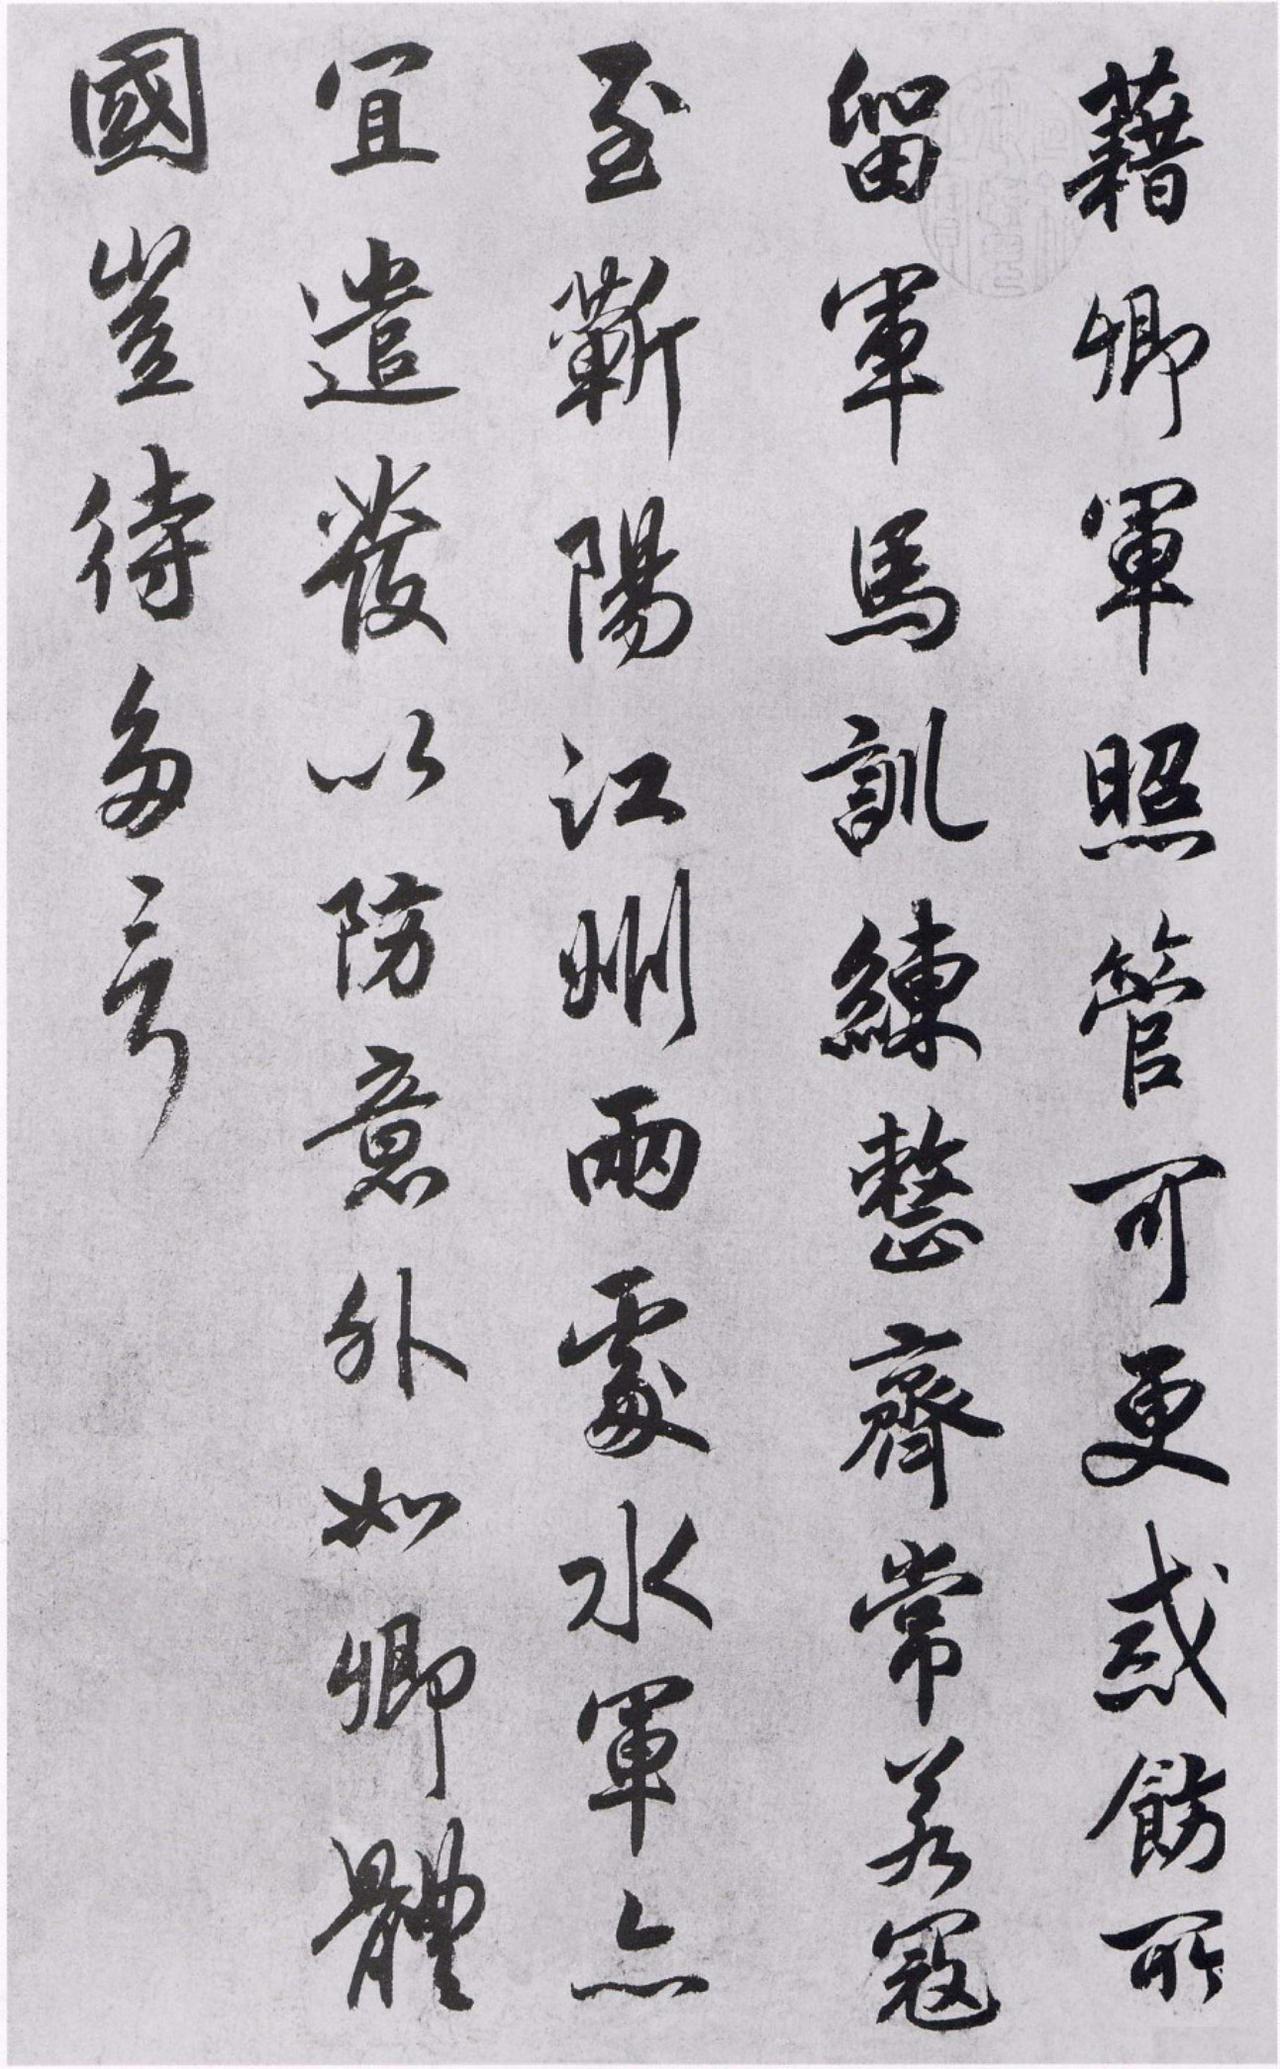 藉卿軍照管可更戒飭所
留軍馬訓練整齊常若寇
至蘄陽江州兩處水軍亦
宜遣發以防意外如卿體
國豈待多言